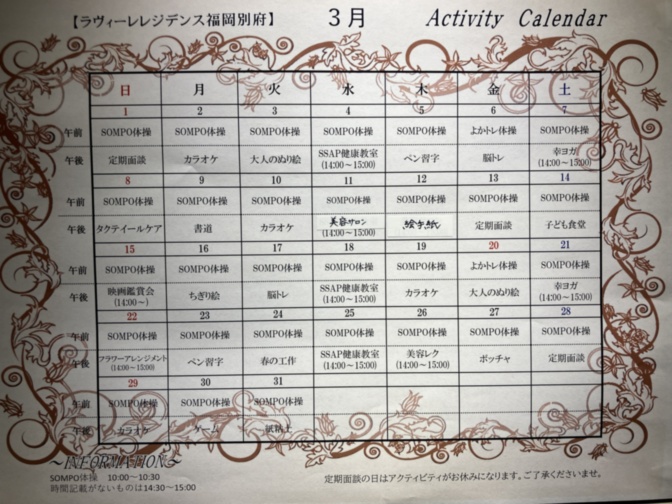 【ラヴィーレレジデンス福岡別府】 3月 Activity Calendar
日 月 火 水 木 金 土
1 2 3 4 5 6 7
午前 SOMPO体操 SOMPO体操 SOMPO体操 SOMPO体操 SOMPO体操 よかトレ体操 SOMPO体操
午後 定期面談 カラオケ 大人のぬり絵 SSAP健康教室 ペン習字 脳トレ 幸ヨガ
(14:00～15:00) (14:00～15:00)
8 9 10 11 12 13 14
午前 SOMPO体操 SOMPO体操 SOMPO体操 SOMPO体操 SOMPO体操 SOMPO体操 SOMPO体操
午後 タクティールケア 書道 カラオケ 美容サロン 絵手紙 定期面談 子ども食堂
(14:00～15:00)
15 16 17 18 19 20 21
午前 SOMPO体操 SOMPO体操 SOMPO体操 SOMPO体操 SOMPO体操 よかトレ体操 SOMPO体操
午後 映画鑑賞会 ちぎり絵 脳トレ SSAP健康教室 カラオケ 大人のぬり絵 幸ヨガ
(14:00～) (14:00～15:00) (14:00～15:00)
22 23 24 25 26 27 28
午前 SOMPO体操 SOMPO体操 SOMPO体操 SOMPO体操 SOMPO体操 SOMPO体操 SOMPO体操
午後 フラワーアレンジメント ペン習字 春の工作 SSAP健康教室 美容レク ボッチャ 定期面談
(14:00～15:00) (14:00～15:00) (14:00～15:00)
29 30 31
午前 SOMPO体操 SOMPO体操 SOMPO体操
午後 カラオケ ゲーム 紙粘土
～INFORMATION～
SOMPO体操 10:00～10:30
時間記載がないものは14:30～15:00
定期面談の日はアクティビティがお休みになります。ご了承くださいませ。